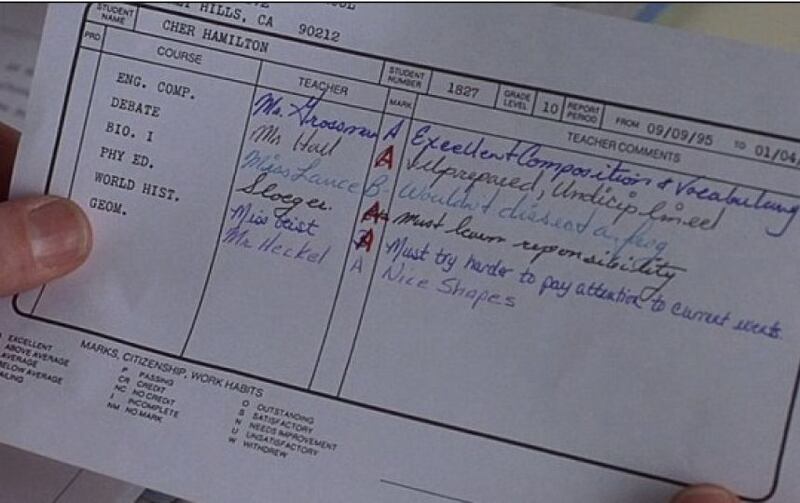 HILLS, CA 90212
STUDENT NAME CHER HAMILTON STUDENT NUMBER 1827 GRADE LEVEL 10 REPORT PERIOD FROM 09/09/95 TO 01/04/
PRD COURSE TEACHER MARK TEACHER COMMENTS
ENG. COMP. Mr. Grossman A Excellent Composition & Vocabulary
DEBATE Mr Hall A Unprepared, Undiciplined
BIO. I Miss Lance B Wouldn't dissect a frog
PHY ED. Stoeger. A Must learn reponsibility
WORLD HIST. Miss Geist A Must try harder to pay attention to current events.
GEOM. Mr. Heckel A Nice Shapes
MARKS, CITIZENSHIP, WORK HABITS
EXCELLENT P PASSING O OUTSTANDING
ABOVE AVERAGE CR CREDIT S SATISFACTORY
AVERAGE NC NO CREDIT N NEEDS IMPROVEMENT
BELOW AVERAGE I INCOMPLETE U UNSATISFACTORY
AILING NM NO MARK W WITHDREW